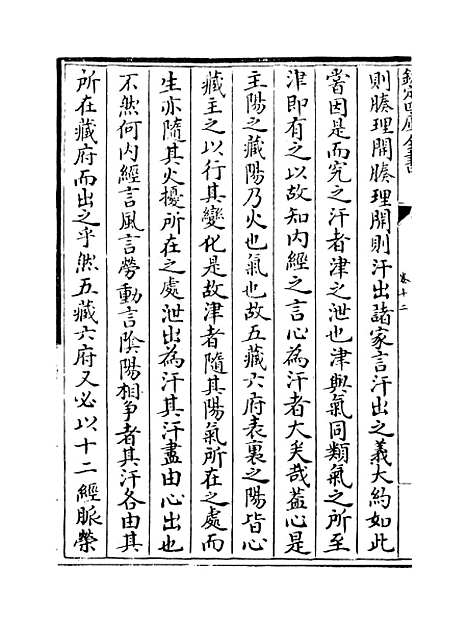 欽定四庫全書
卷十二
則腠理開腠理開則汗出諸家言汗出之義大約如此
嘗因是而究之汗者津之泄也津與氣同類氣之所至
津即有之以故知内經之言心為汗者大矣哉葢心是
主陽之藏陽乃火也氣也故五藏六府表裏之陽皆心
藏主之以行其變化是故津者隨其陽氣所在之處而
生亦隨其火擾所在之處泄出為汗其汗盡由心出也
不然何内經言風言勞動言隂陽相争者其汗各由其
所在藏府而出之乎然五藏六府又必以十二經脈榮